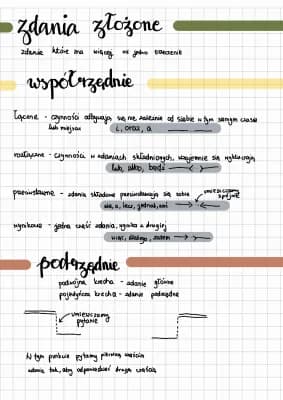 zdania złożone
zdanie które ma więcej niż jedno orzeczenie
współrzędnie
łączne - czynności odbywają się niezależnie od siebie w tym samym czasie
lub miejscu
i, oraz, a
rozłączne - czynności w zdaniach składniowych, wzajemnie się wykluczają
lub, albo, bądź
przeciwstawne - zdania składowe przeciwstawiają się sobie
umieszczamy
spójnik
ale, a, lecz, jednak,
wynikowe - jedna część zdania, wynika z drugiej
więc, dlatego, zatem
podrzędnie
podwójna krecha - zdanie główne
pojedyńcza krecha - zdanie podrzędne
umieszczamy
pytanie
W tym punkcie pytamy pierwszą częścią
zdania tak, aby odpowiedzieć drugą częścią